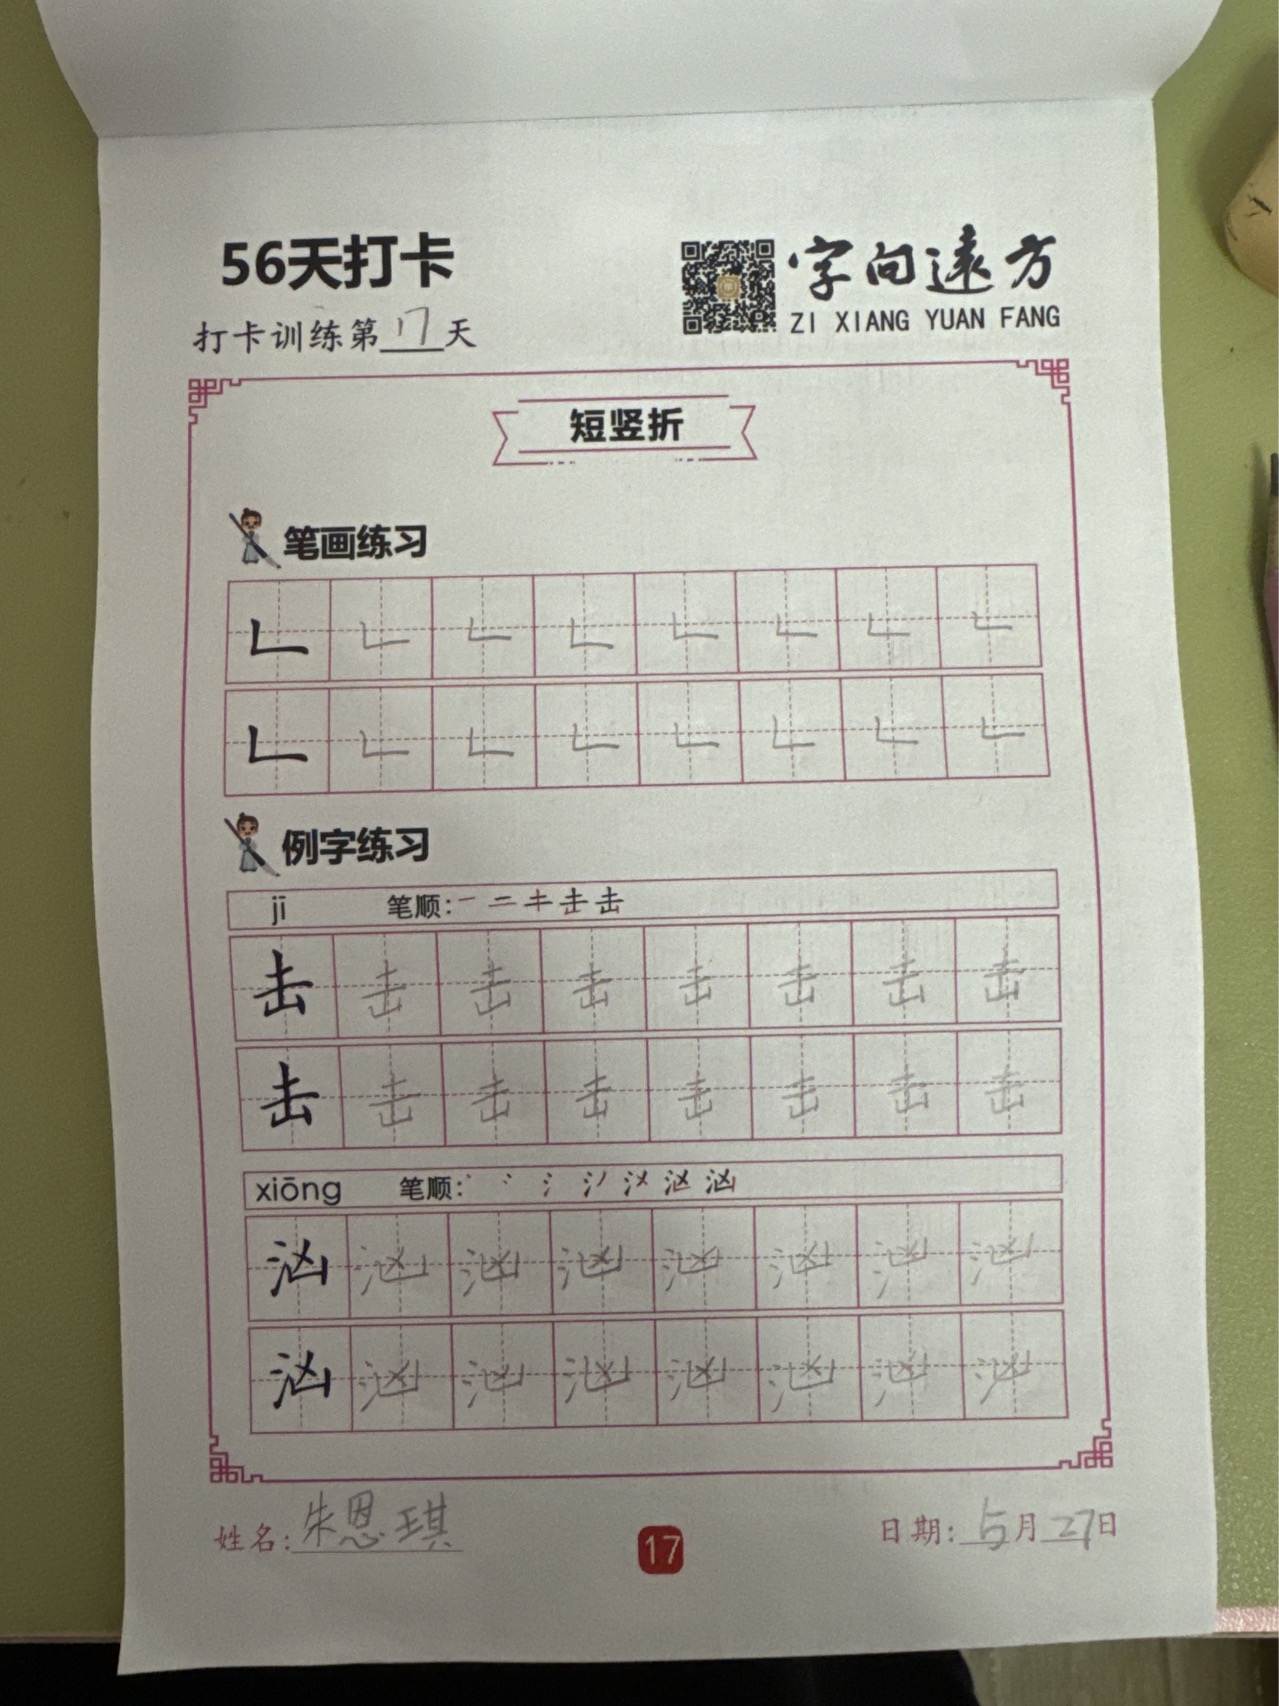 56天打卡
字向遠方
ZI XIANG YUAN FANG
打卡训练第17天
短竖折
笔画练习
𠃊 𠃊 𠃊 𠃊 𠃊 𠃊 𠃊 𠃊
𠃊 𠃊 𠃊 𠃊 𠃊 𠃊 𠃊 𠃊
例字练习
jī 笔顺: 一 二 キ 击 击
击 击 击 击 击 击 击 击
击 击 击 击 击 击 击 击
xiōng 笔顺: 汹
汹 汹 汹 汹 汹 汹 汹 汹
汹 汹 汹 汹 汹 汹 汹 汹
姓名: 朱恩琪
17
日期: 5月27日